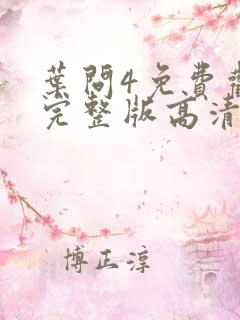 葉問4免費
完整版高清
博正淳